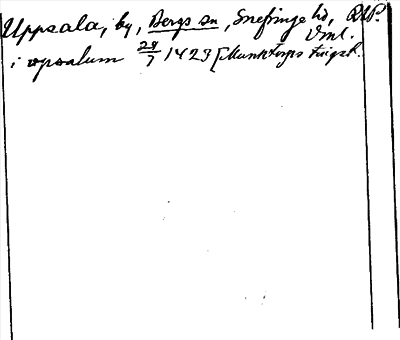 Uppsala, by, Bergs sn, Snefringe hd,
Vml.
i vpsalum 29/7 1423 [Munktorps tingsh.